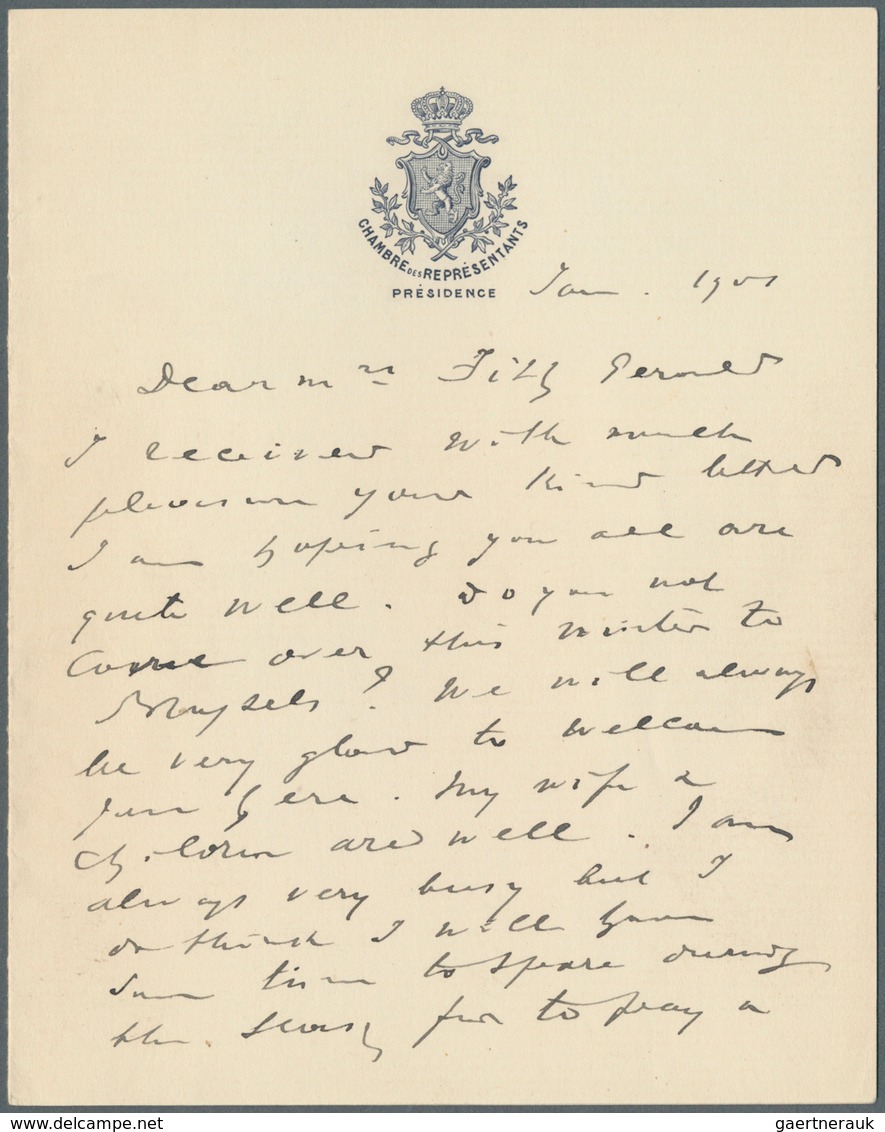 CHAMBRE DES REPRÉSENTANTS
PRÉSIDENCE
Jan. 1901
Dear Mrs Fitz Gerald
I received with much
pleasure your kind letter
I am hoping you all are
quite well. Do you not
come over this winter to
Brussels? We will always
be very glad to welcome
you here. My wife &
children are well. I am
always very busy but I
do think I will have
some time to spare during
the for to pay a
gaertnerauk